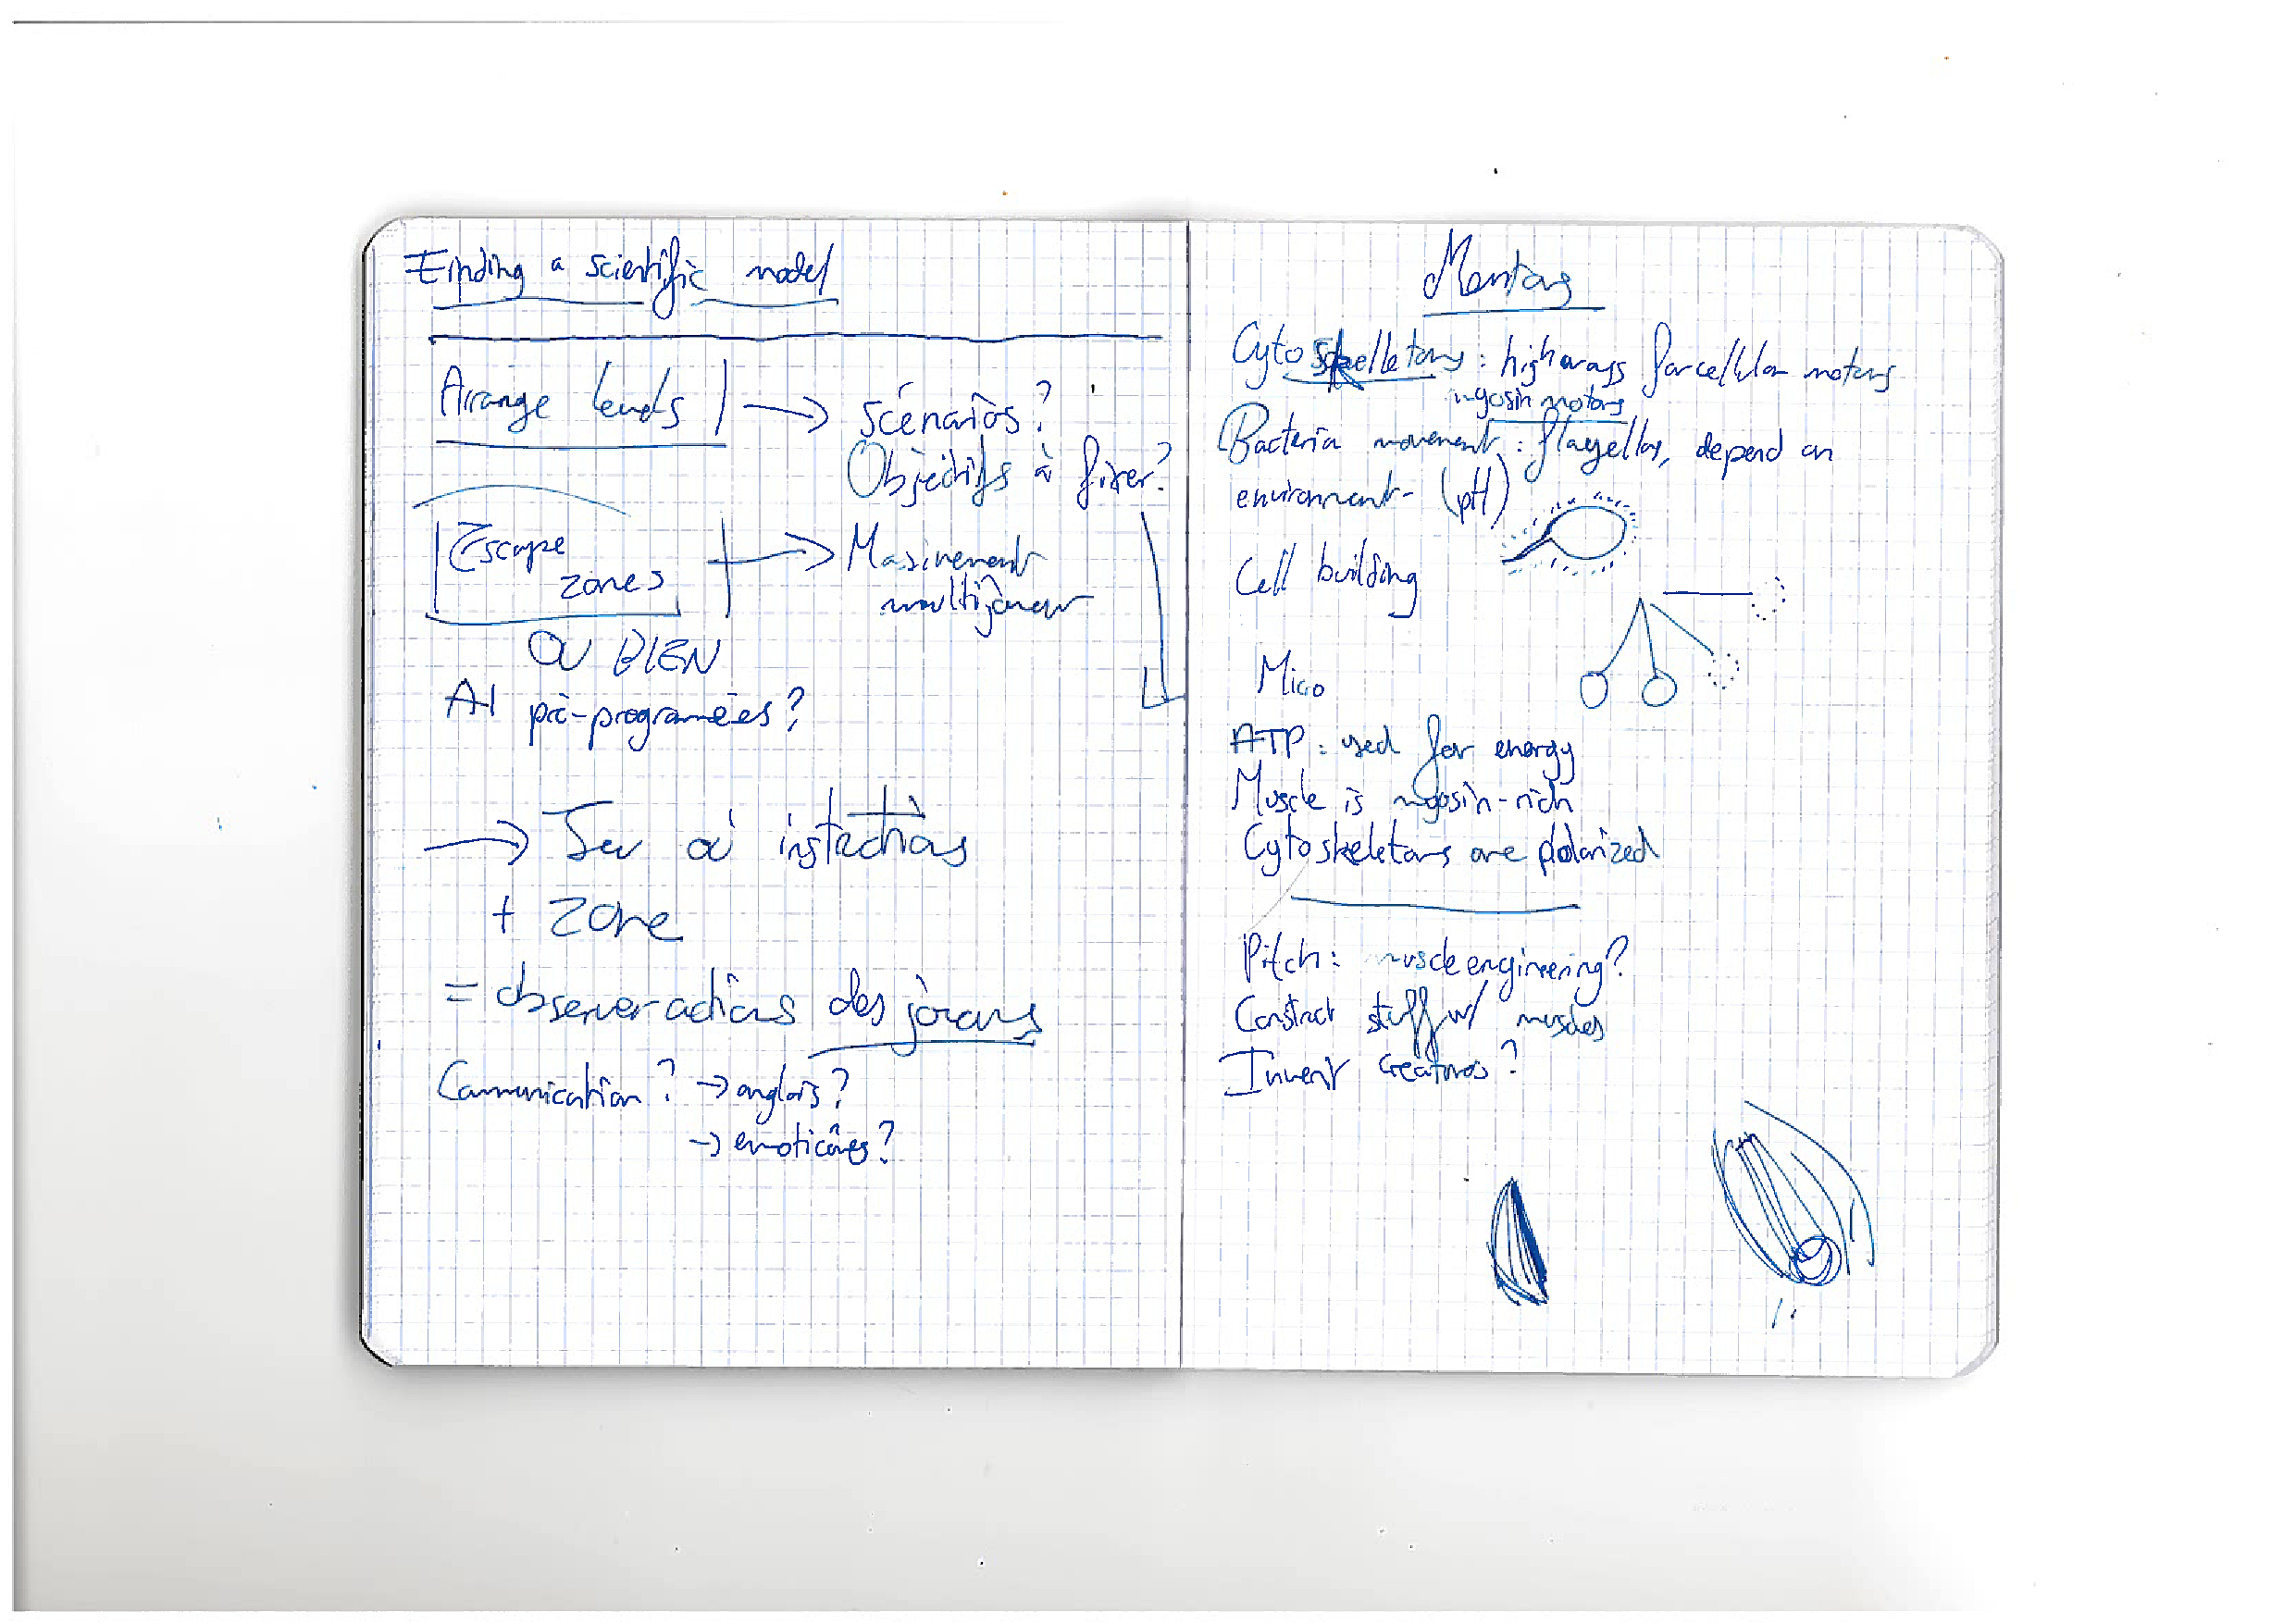 Finding a scientific model
Arrange levels → scénarios?
Objectifs à fixer?
Escape zones → Massivement multijoueur
OU BIEN
AI pré-programmées?
→ Jeu à
+ zone
= observer actions des joueurs
Communication? → anglais?
→ emoticônes?
Mentors
Cytoskelletons: highways for cellular motors
myosin motors
Bacteria movement: flagellas, depend on
environment (pH)
Cell building
Micro
ATP: used for energy
Muscle is myosin-rich
Cytoskeletons are polarized
Pitch: muscle engineering?
Construct stuff w/ muscles
Invent creatures?